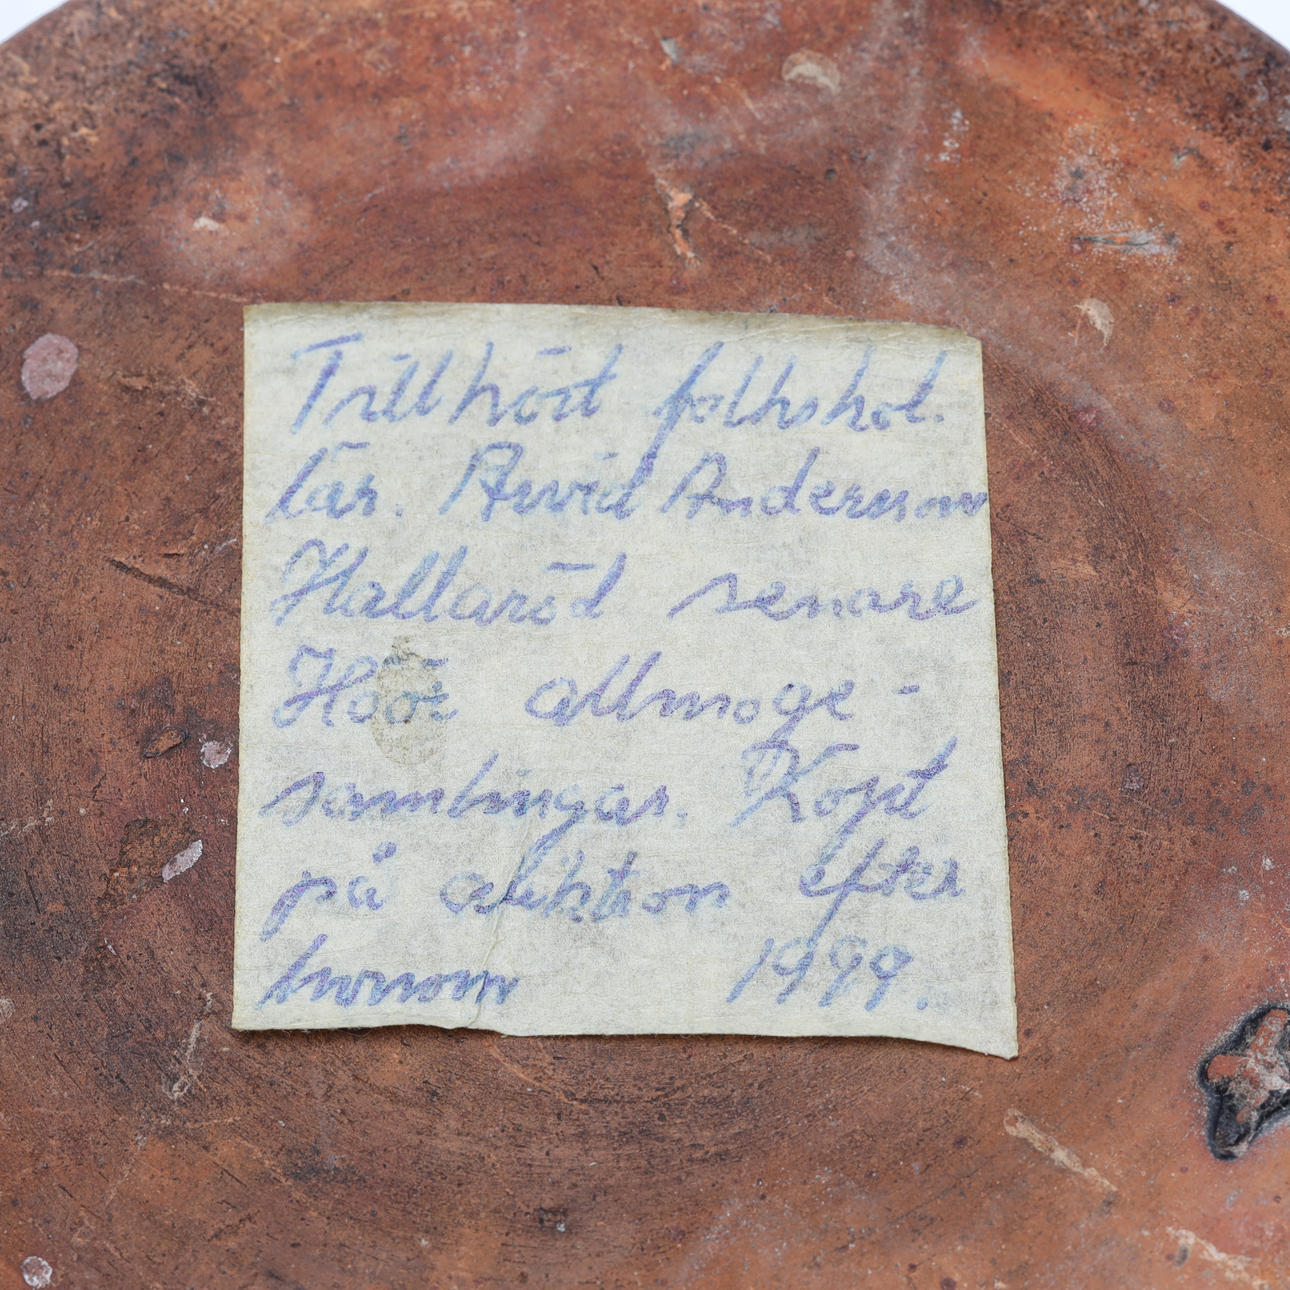 Tillhört folkskol.
lär. Arvid Andersson
Hallaröd senare
Höör allmoge-
samlingar. Köpt
på auktion efter
honom 1999.